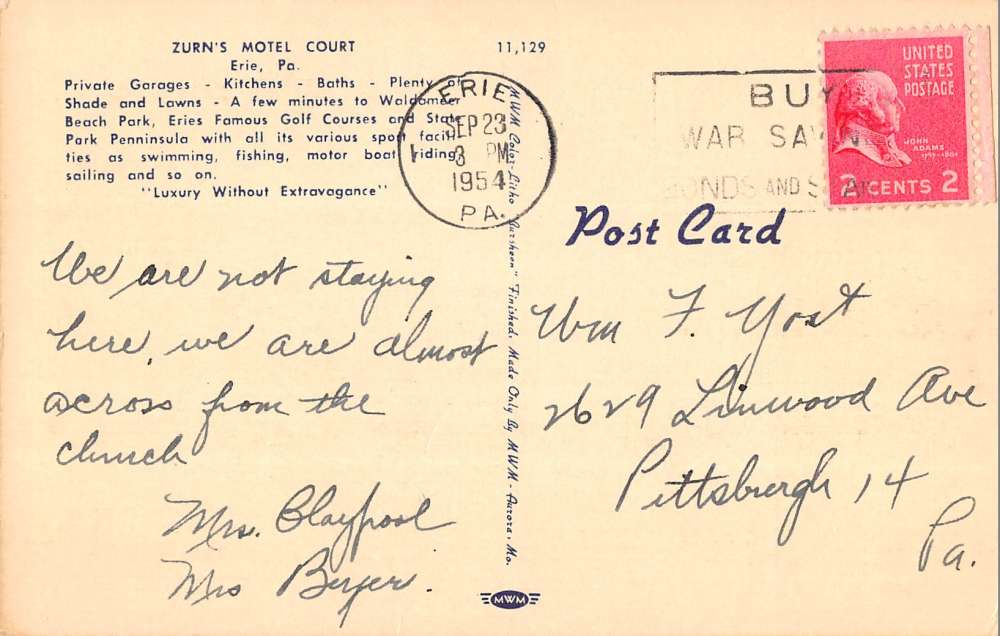 ZURN'S MOTEL COURT
Erie, Pa.
Private Garages - Kitchens - Baths - Plenty of
Shade and Lawns - A few minutes to Waldameer
Beach Park, Eries Famous Golf Courses and State
Park Penninsula with all its various sport facili-
ties as swimming, fishing, motor boat riding,
sailing and so on.
"Luxury Without Extravagance"
11,129
ERIE
SEP 23
3 PM
1954
PA.
BUY
WAR SAVINGS
BONDS AND STAMPS
UNITED
STATES
POSTAGE
JOHN
ADAMS
2 CENTS 2
Post Card
We are not staying
here, we are almost
across from the
church
Mrs. Claypool
Mrs Beyer.
MWM Color-Litho "Aursheen" Finished. Made Only By MWM - Aurora, Mo.
Wm F. Yost
2629 Linwood Ave
Pittsburgh 14
Pa.
MWM